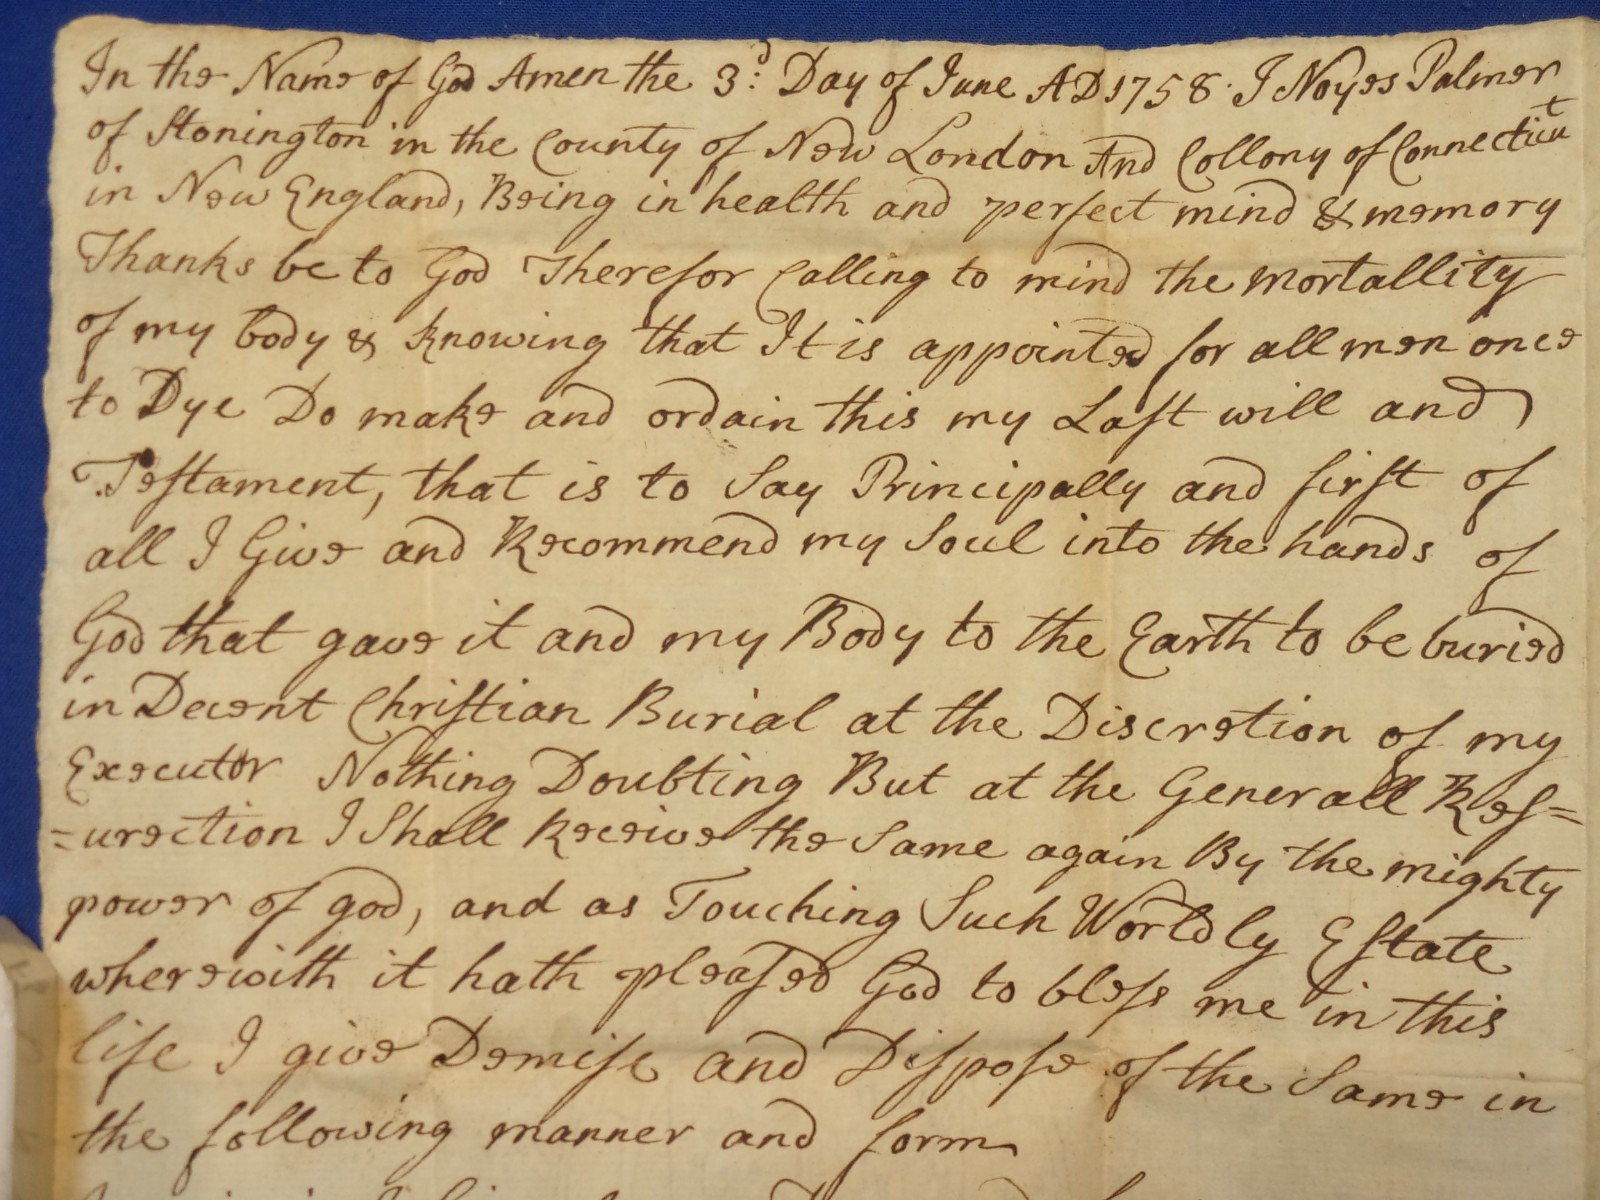 In the Name of God Amen the 3:d Day of June AD 1758. I Noyes Palmer
of Stonington in the County of New London And Collony of Connecticut
in New England, Being in health and perfect mind & memory
Thanks be to God Therefor Calling to mind the mortallity
of my body & knowing that It is appointed for all men once
to Dye Do make and ordain this my Last will and
Testament, that is to Say Principally and first of
all I Give and Recommend my Soul into the hands of
God that gave it and my Body to the Earth to be buried
in Decent Christian Burial at the Discretion of my
Executor Nothing Doubting But at the Generall Res=
=urection I Shall Receive the Same again By the mighty
power of god, and as Touching Such Worldly Estate
wherewith it hath pleased God to bless me in this
life I give Demise and Dispose of the Same in
the following manner and form